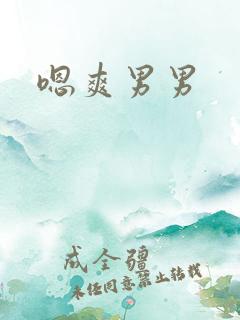 嗯爽男男
成全疆
未经同意禁止转载